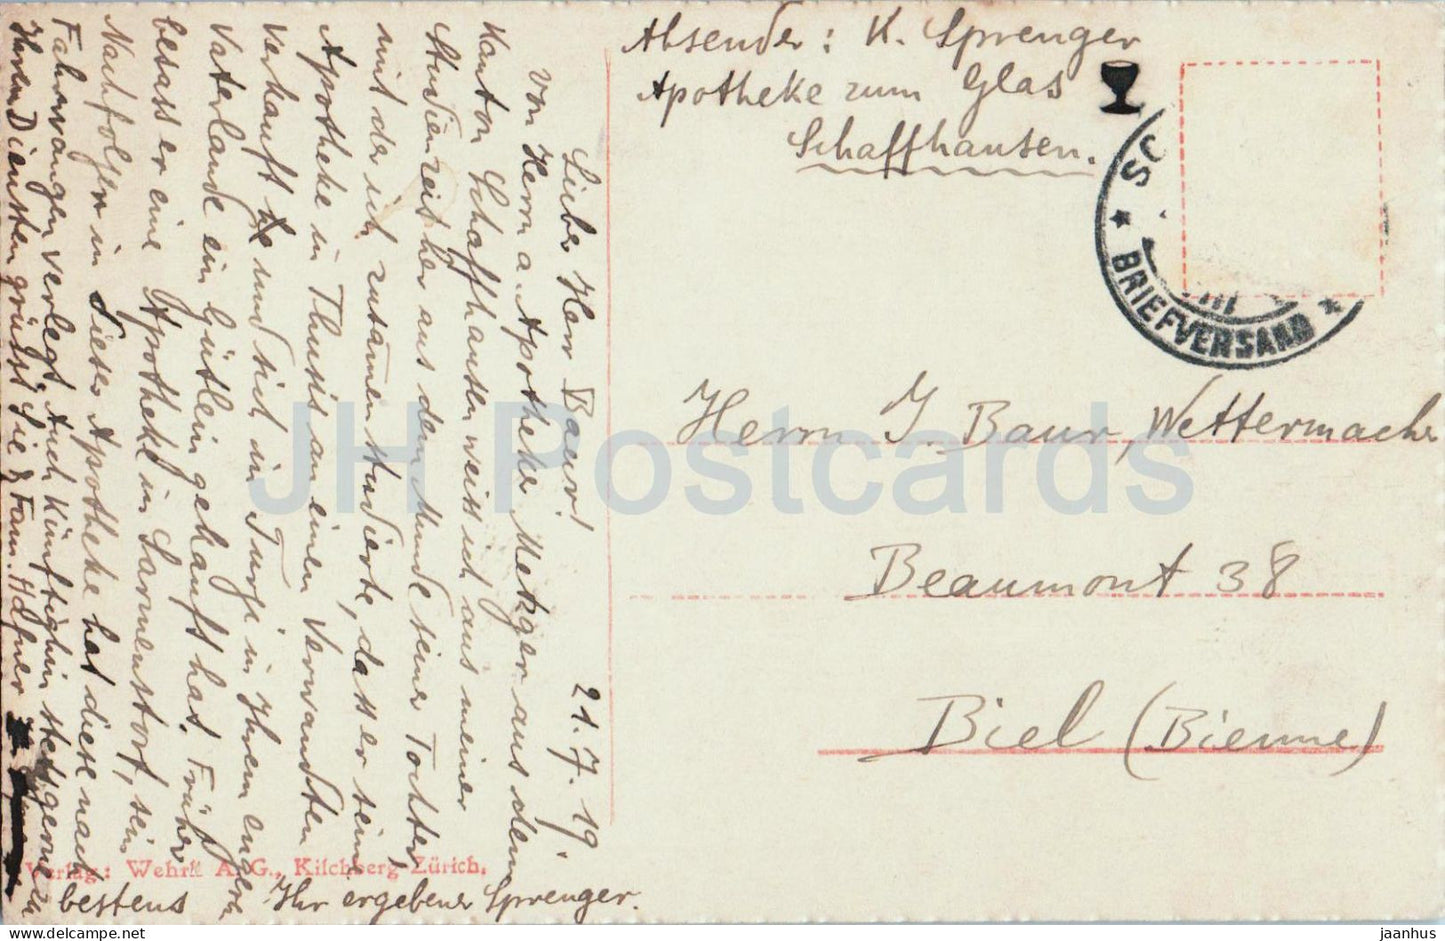 Absender: K. Sprenger
Apotheke zum Glas
Schaffhausen.
SC
BRIEFVERSAND
Herrn J. Baur, Wettermacher
Beaumont 38
Biel (Bienne)
21.7.19.
Lieber Herr Baur!
Von Herrn a. Apotheker Metzger aus dem
Kanton Schaffhausen weiss ich aus meiner
Studienzeit her aus dem Munde seiner Tochter
mit der ich zusammen studierte, dass er seine
Apotheke in Thusis an einen Verwandten
verkauft und sich in Turgi in Ihrem engern
Vaterlande ein Gütlein gekauft hat. Früher
besass er eine Apotheke in Sarmenstorf, sein
Nachfolger in dieser Apotheke hat diese nach
Fahrwangen verlegt. Auch künftighin stets gerne zu
Ihren Diensten grüsst Sie & Fam. Hefner
bestens Ihr ergebener Sprenger.
Verlag: Wehrli A. G., Kilchberg-Zürich.
JH Postcards
jaanhus
www.hipmarket.com